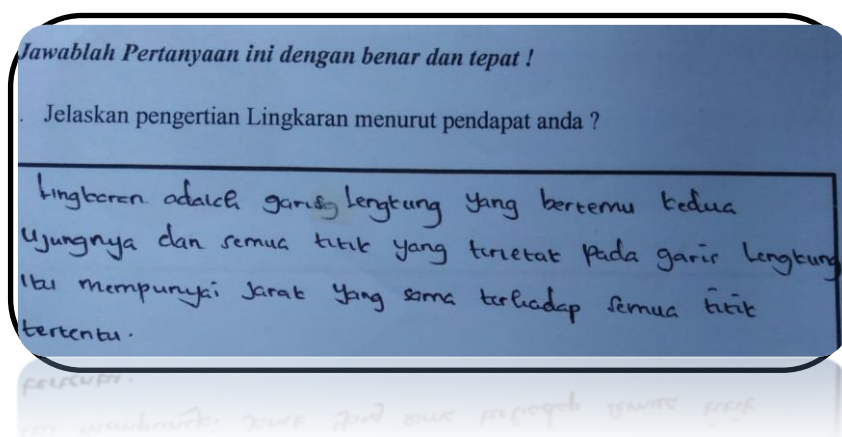 Jawablah Pertanyaan ini dengan benar dan tepat !
. Jelaskan pengertian Lingkaran menurut pendapat anda ?
Lingkaran adalah garis lengkung yang bertemu kedua
ujungnya dan semua titik yang terletak pada garis lengkung
itu mempunyai jarak yang sama terhadap semua titik
tertentu.